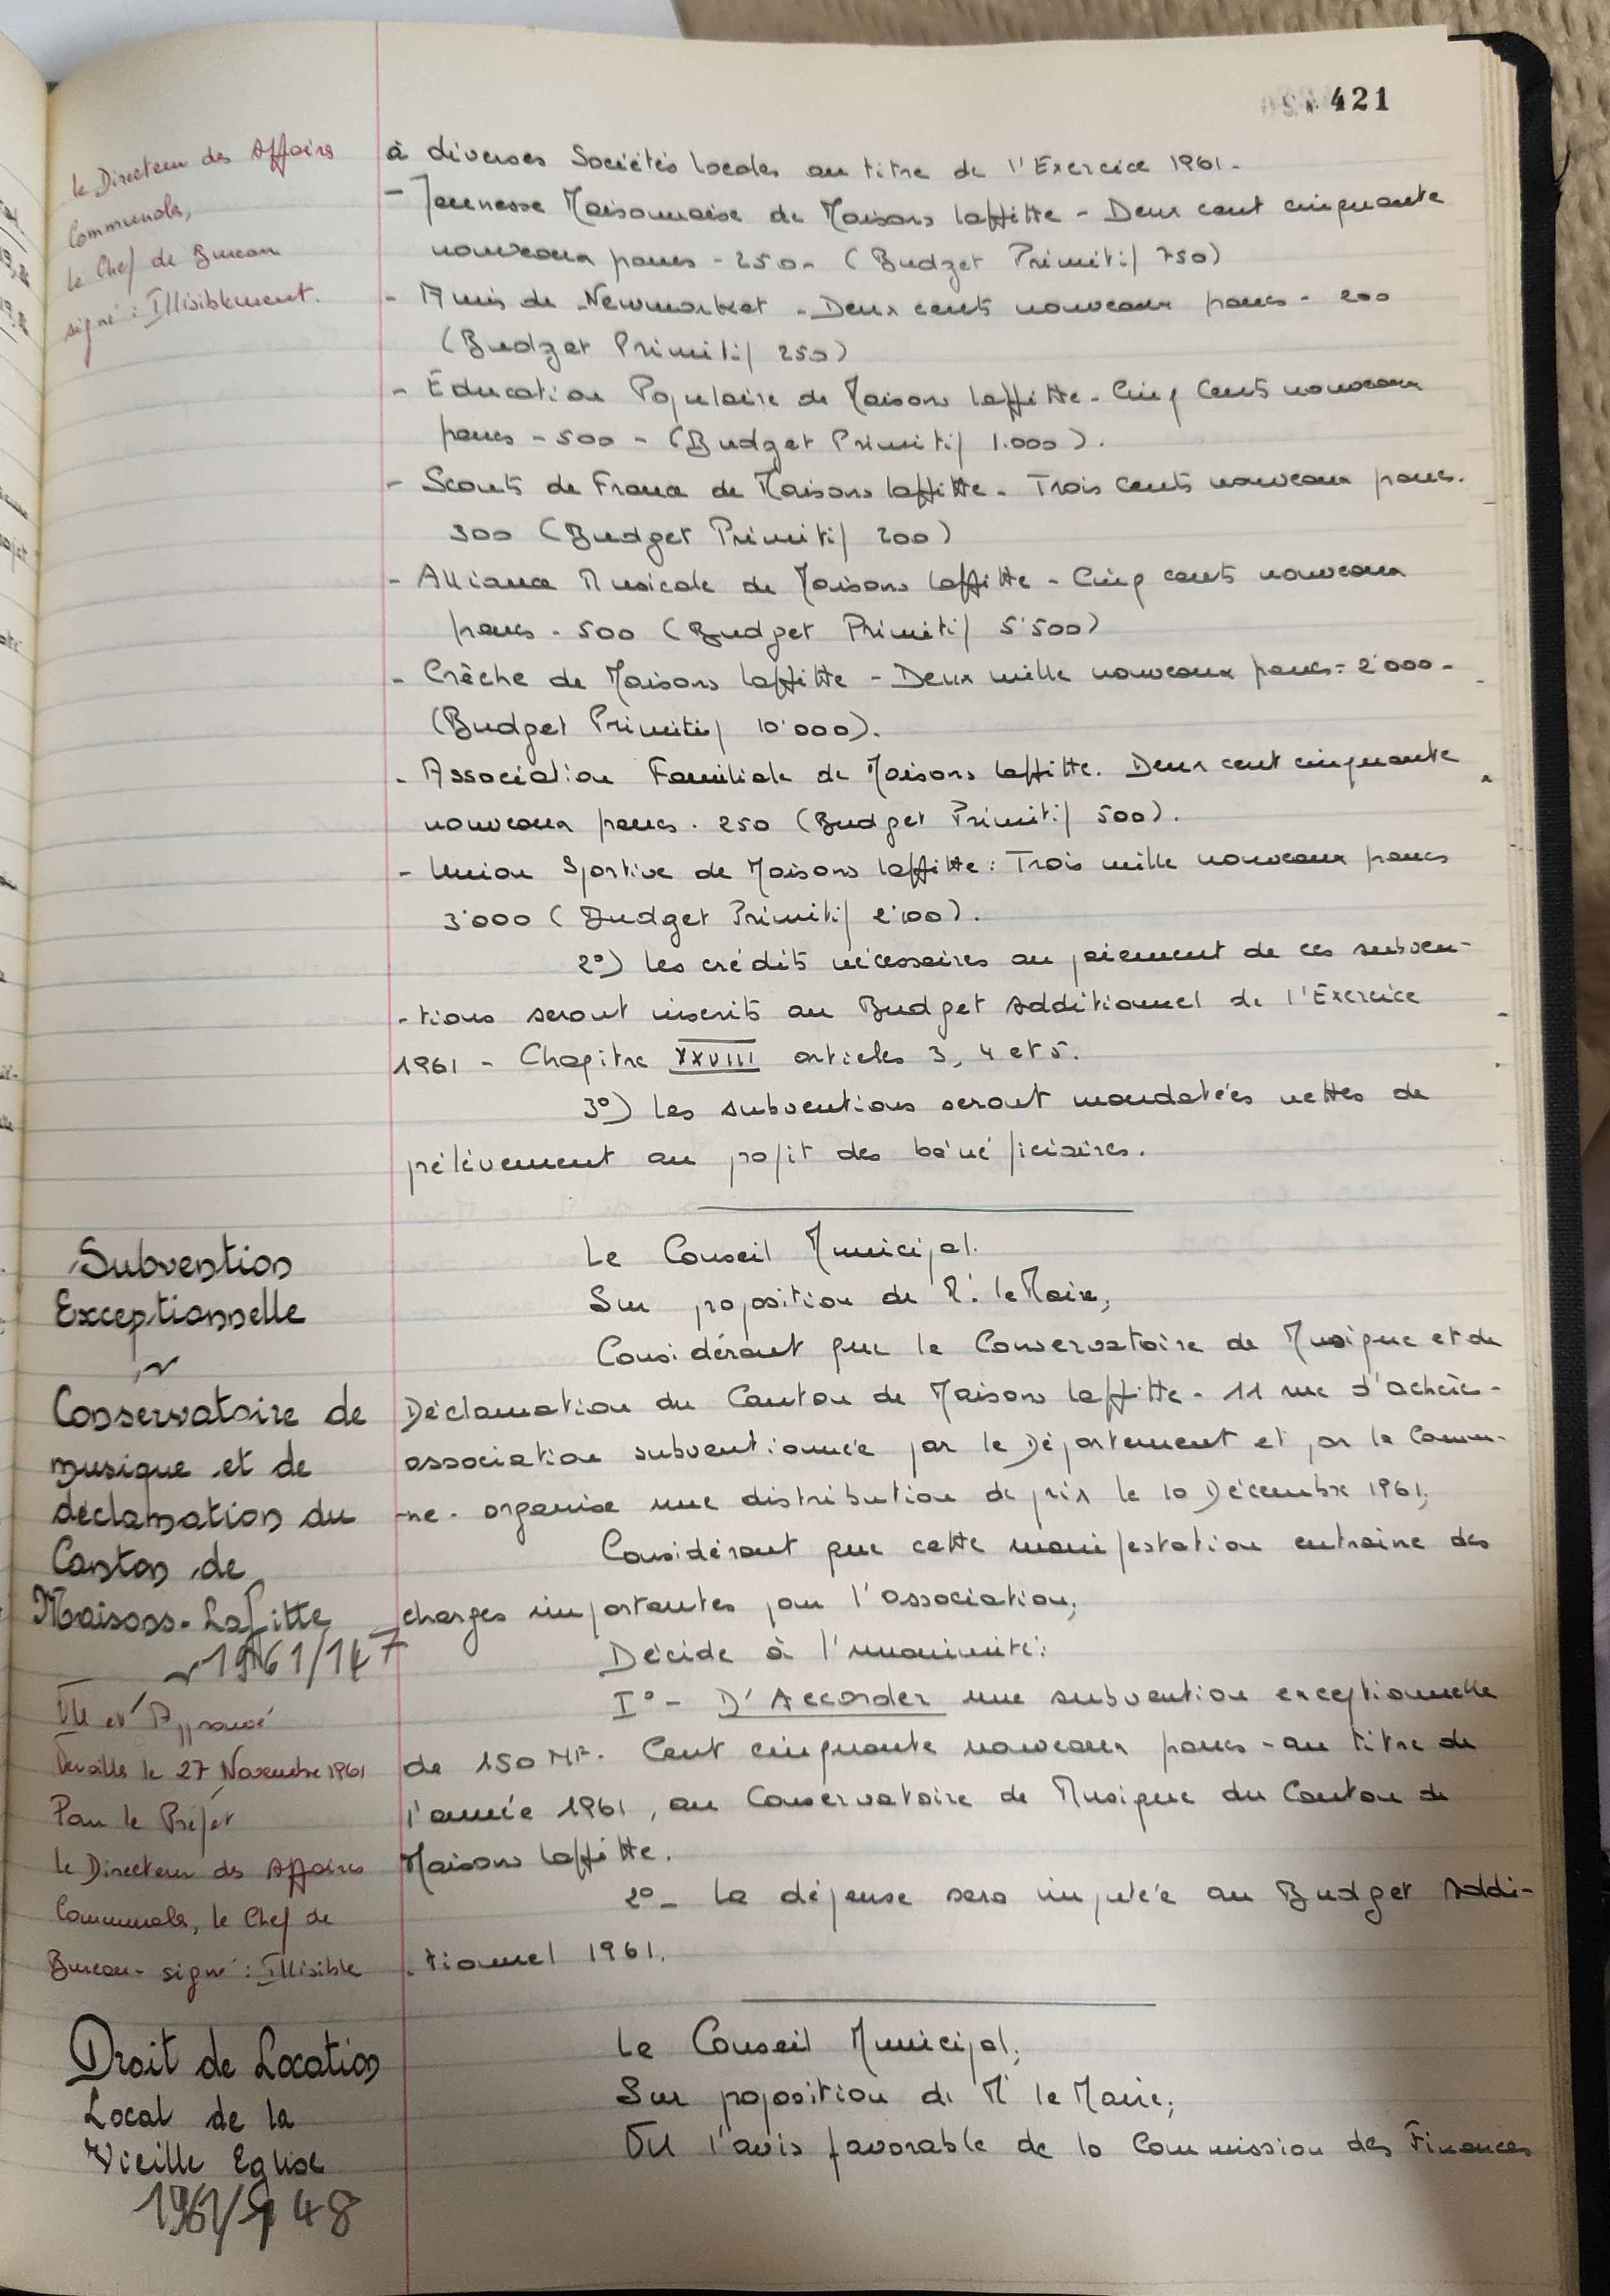 421
le Directeur des Affaires
Communales,
le Chef de Bureau
signé : Illisiblement.
à diverses Sociétés locales au titre de l'Exercice 1961 -
- Jeunesse Maisonnaise de Maisons Laffitte - Deux cent cinquante
nouveaux francs - 250 - ( Budget Primitif 750)
- Amis de Newmarket - Deux cents nouveaux francs - 200
(Budget Primitif 250)
- Education Populaire de Maisons Laffitte - Cinq Cents nouveaux
francs - 500 - (Budget Primitif 1.000 ).
- Scouts de France de Maisons Laffitte - Trois cents nouveaux francs.
300 (Budget Primitif 200)
- Alliance Musicale de Maisons Laffitte - Cinq cents nouveaux
francs - 500 (Budget Primitif 5'500)
- Crèche de Maisons Laffitte - Deux mille nouveaux francs = 2'000 -
(Budget Primitif 10'000).
- Association Familiale de Maisons Laffitte. Deux cent cinquante
nouveaux francs. 250 (Budget Primitif 500).
- Union Sportive de Maisons Laffitte : Trois mille nouveaux francs
3'000 ( Budget Primitif 2'100).
2°) les crédits nécessaires au paiement de ces subven-
-tions seront inscrits au Budget Additionnel de l'Exercice
1961 - Chapitre XXVIII articles 3, 4 et 5.
3°) les subventions seront mandatées nettes de
prélèvement au profit des bénéficiaires.
Subvention
Exceptionnelle
Conservatoire de
musique et de
déclamation du
Canton de
Maisons-Laffitte
1961/147
Le Conseil Municipal.
Sur proposition de M. le Maire,
Considérant que le Conservatoire de Musique et de
Déclamation du Canton de Maisons Laffitte - 11 rue d'achères -
association subventionnée par le Département et par la Commu-
-ne - organise une distribution de prix le 10 Décembre 1961,
Considérant que cette manifestation entraine des
charges importantes pour l'association,
Décide à l'unanimité :
I° - D'Accorder une subvention exceptionnelle
de 150 NF. Cent cinquante nouveaux francs - au titre de
l'année 1961, au Conservatoire de Musique du Canton de
Maisons Laffitte.
2° - La dépense sera imputée au Budget Addi-
-tionnel 1961.
VU et Approuvé
Versailles le 27 Novembre 1961
Pour le Préfet
le Directeur des Affaires
Communales, le Chef de
Bureau - signé : Illisible
Droit de Location
Local de la
Vieille Eglise
1961/148
Le Conseil Municipal,
Sur proposition de M. le Maire,
VU l'avis favorable de la Commission des Finances